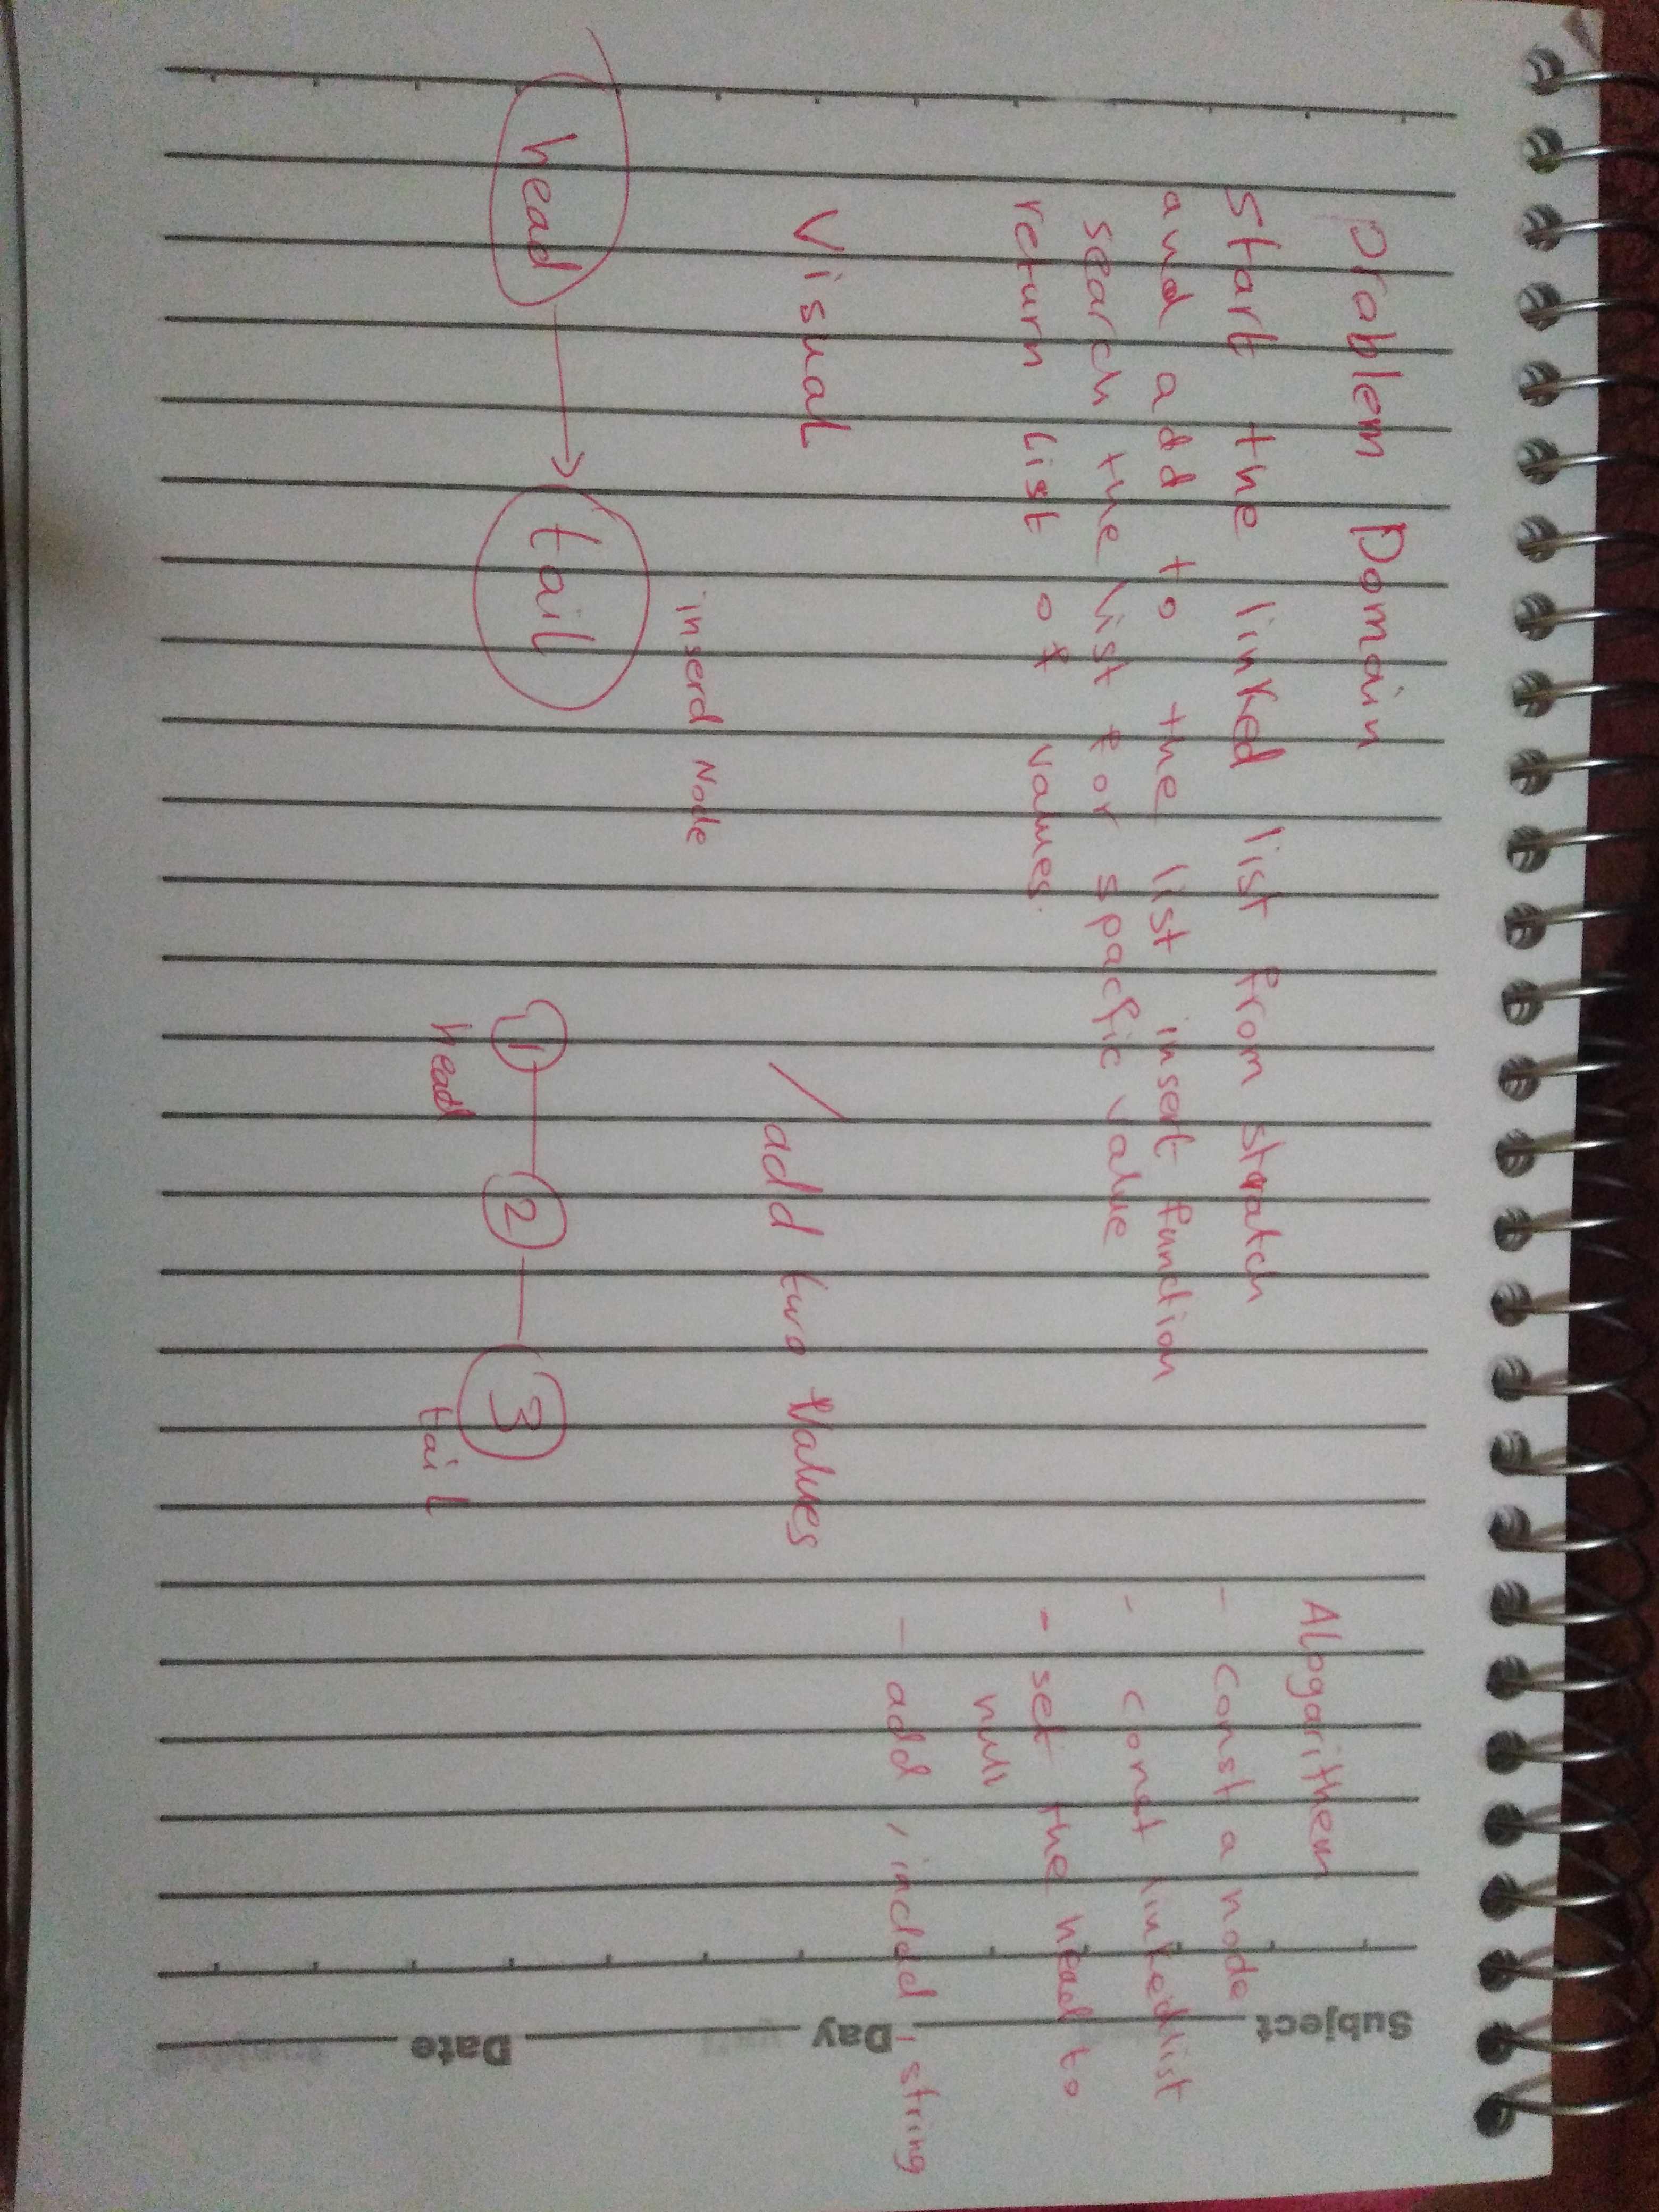 Problem Domain
Start the linked list from stratch
and add to the list insert function
search the list for spacfic value
return list of values.
Visual
inserd Node
head
tail
/ add two Values
1 2 3
head
tail
Alogarithem
- Const a node
- const linked list
- set the head to
null
- add , includ , string
Subject
Day
Date